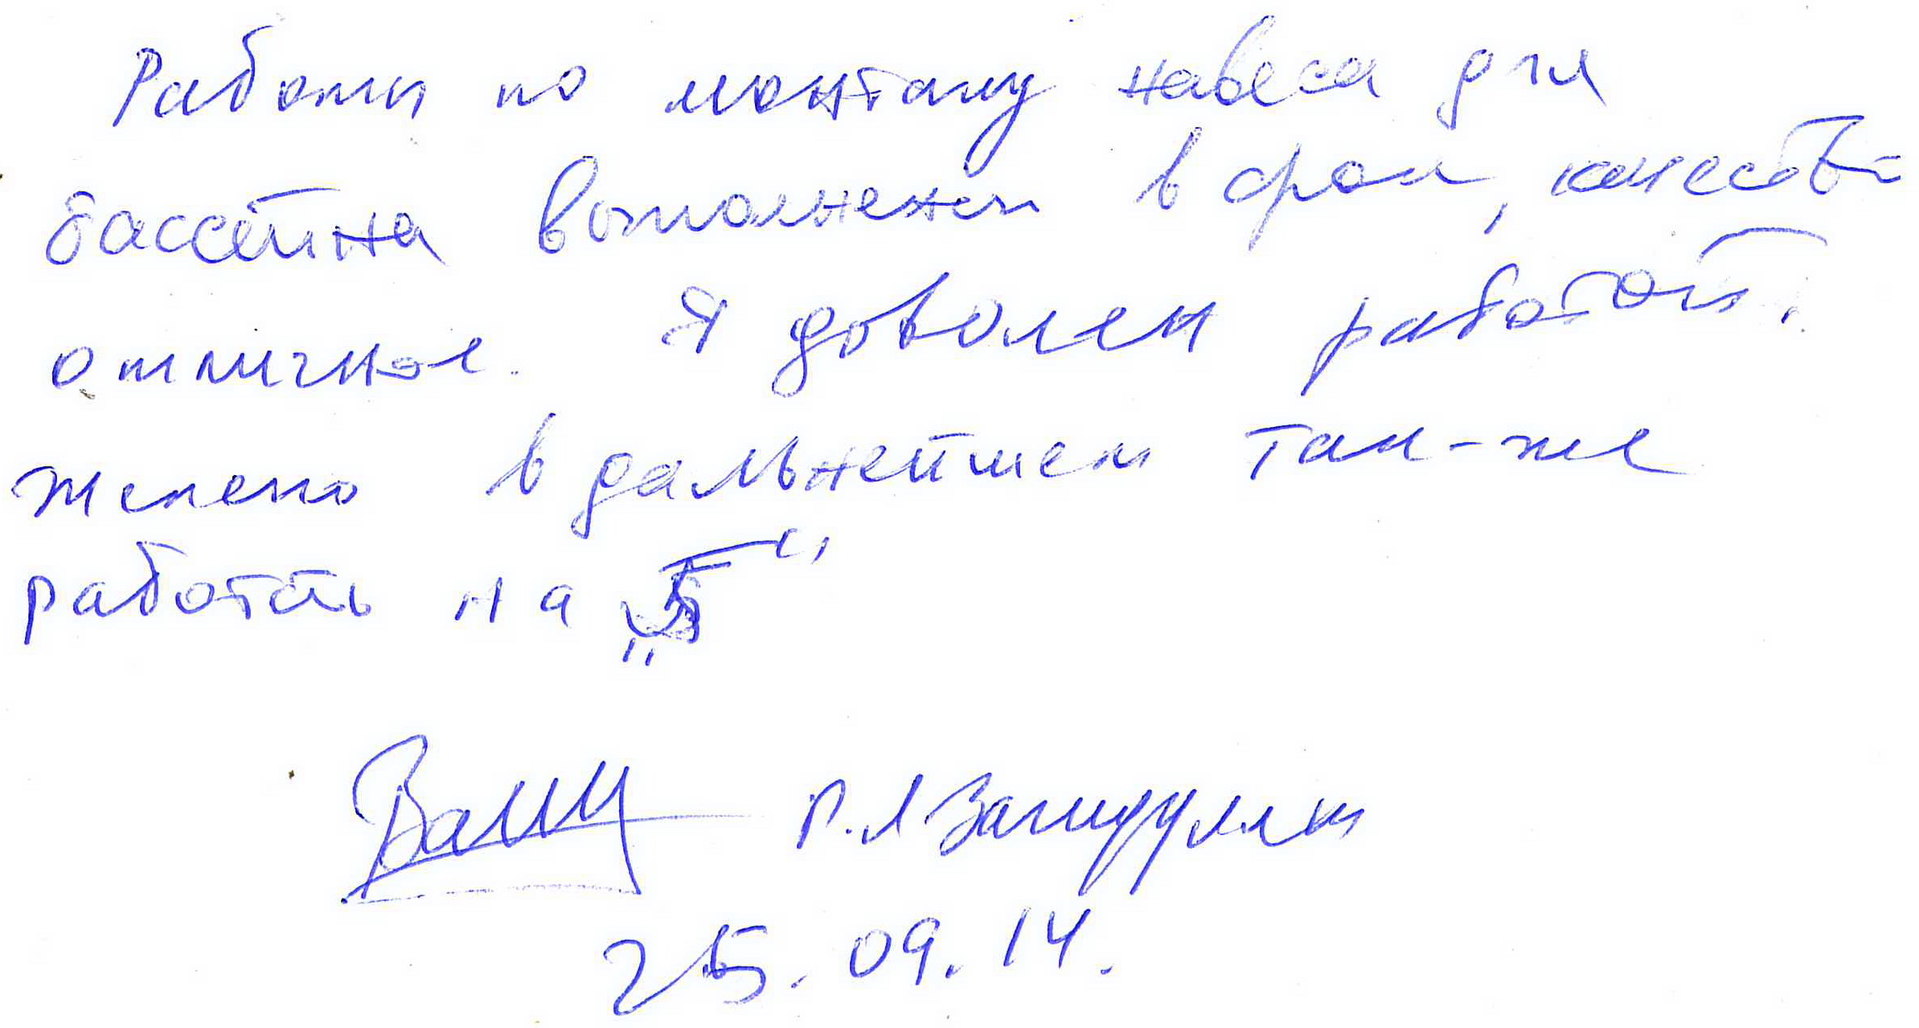 Работы по монтажу навеса для
бассейна выполнены в срок, качество
отличное. Я доволен работой.
Желаю в дальнейшем так-же
работать на „5“
Р.Л Загидуллин
25.09.14.